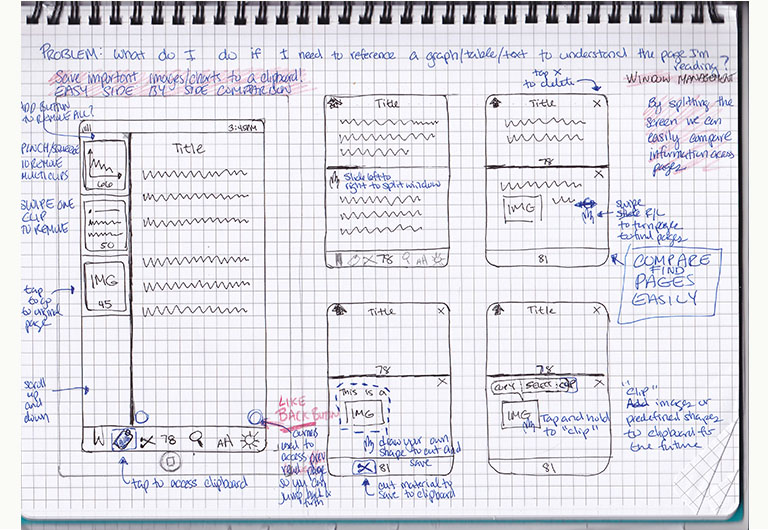 PROBLEM: What do I do if I need to reference a graph/table/text to understand the page I'm
reading?
Save important images/charts to a clipboard!
EASY SIDE BY SIDE COMPARISON
ADD BUTTON
TO REMOVE ALL?
PINCH/SQUEEZE
TO REMOVE
MULTI CLIPS
SWIPE ONE
CLIP
TO REMOVE
tap
to go
to original
page
scroll
up
and
down
3:45PM
Title
66
50
IMG
45
78
AA
tap to access clipboard
LIKE
BACK BUTTON
corners
used to
access prev
read page
so you can
jump back &
forth
Title
Slide left to
right to split window
78
AA
tap x
to delete
Title
X
78
X
IMG
81
WINDOW MANAGEMENT
By splitting the
screen we can
easily compare
information across
pages
swipe
R/L
to turn page
to find pages
COMPARE
FIND
PAGES
EASILY
Title
X
78
X
This is a
IMG
draw your own
shape to cut and
save
81
cut material to
save to clipboard
Title
X
78
X
COPY SELECT CLIP
IMG
Tap and hold
to "clip"
81
"Clip"
Add images or
predefined shapes
to clipboard for
the future